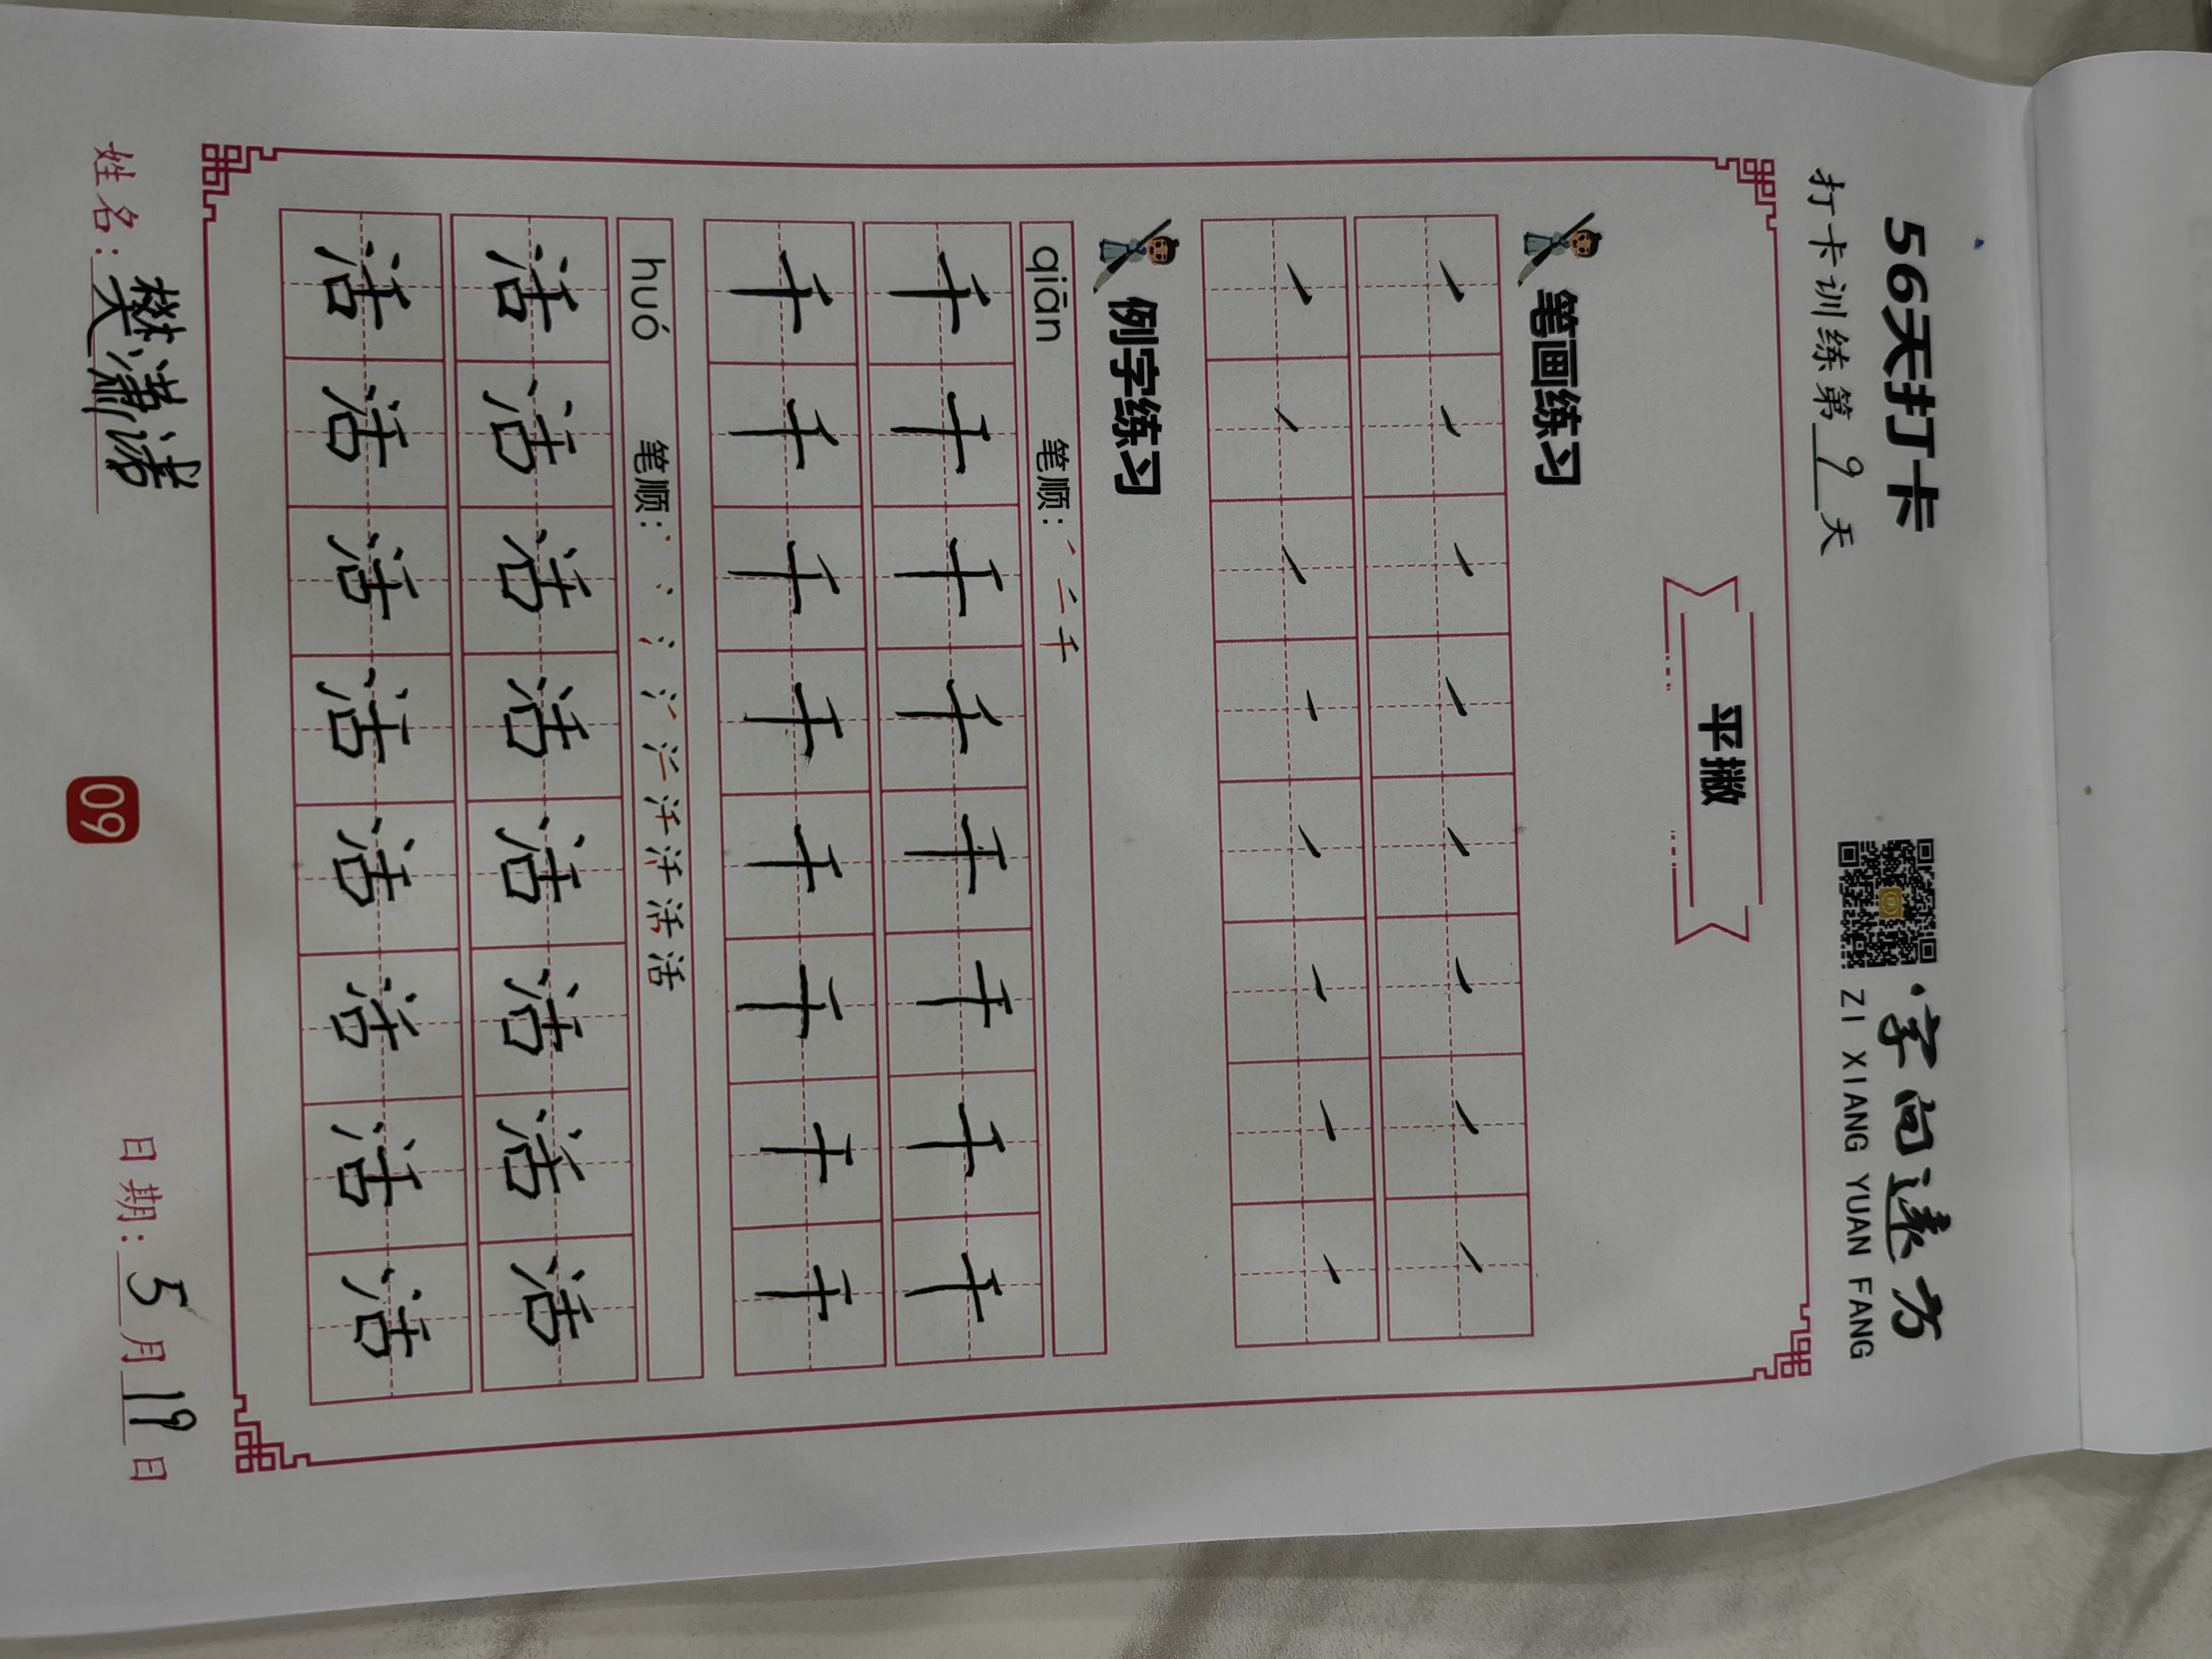 56天打卡
字向远方
打卡训练第9天
ZI XIANG YUAN FANG
平撇
笔画练习
例字练习
qiān 笔顺：
千 千 千 千 千 千 千 千
千 千 千 千 千 千 千 千
huó 笔顺：
活 活 活 活 活 活 活 活
活 活 活 活 活 活 活 活
姓名：樊潇诺 日期：5月19日
09